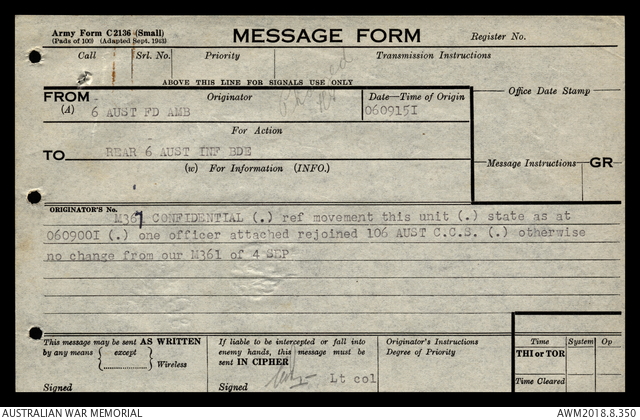 Army Form C2136 (Small)
(Pads of 100) (Adapted Sept. 1943)
MESSAGE FORM
Register No.
Call Srl. No. Priority Transmission Instructions
ABOVE THIS LINE FOR SIGNALS USE ONLY
FROM Originator Date—Time of Origin Office Date Stamp
(A) 6 AUST FD AMB 060915I
For Action
TO REAR 6 AUST INF BDE
(w) For Information (INFO.)
Message Instructions GR
ORIGINATOR'S No.
M367 CONFIDENTIAL (.) ref movement this unit (.) state as at
060900I (.) one officer attached rejoined 106 AUST C.C.S. (.) otherwise
no change from our M361 of 4 SEP
This message may be sent AS WRITTEN
by any means { except }
Wireless
Signed
If liable to be intercepted or fall into
enemy hands, this message must be
sent IN CIPHER
Signed Lt col
Originator's Instructions
Degree of Priority
Time System Op
THI or TOR
Time Cleared
AUSTRALIAN WAR MEMORIAL AWM2018.8.350